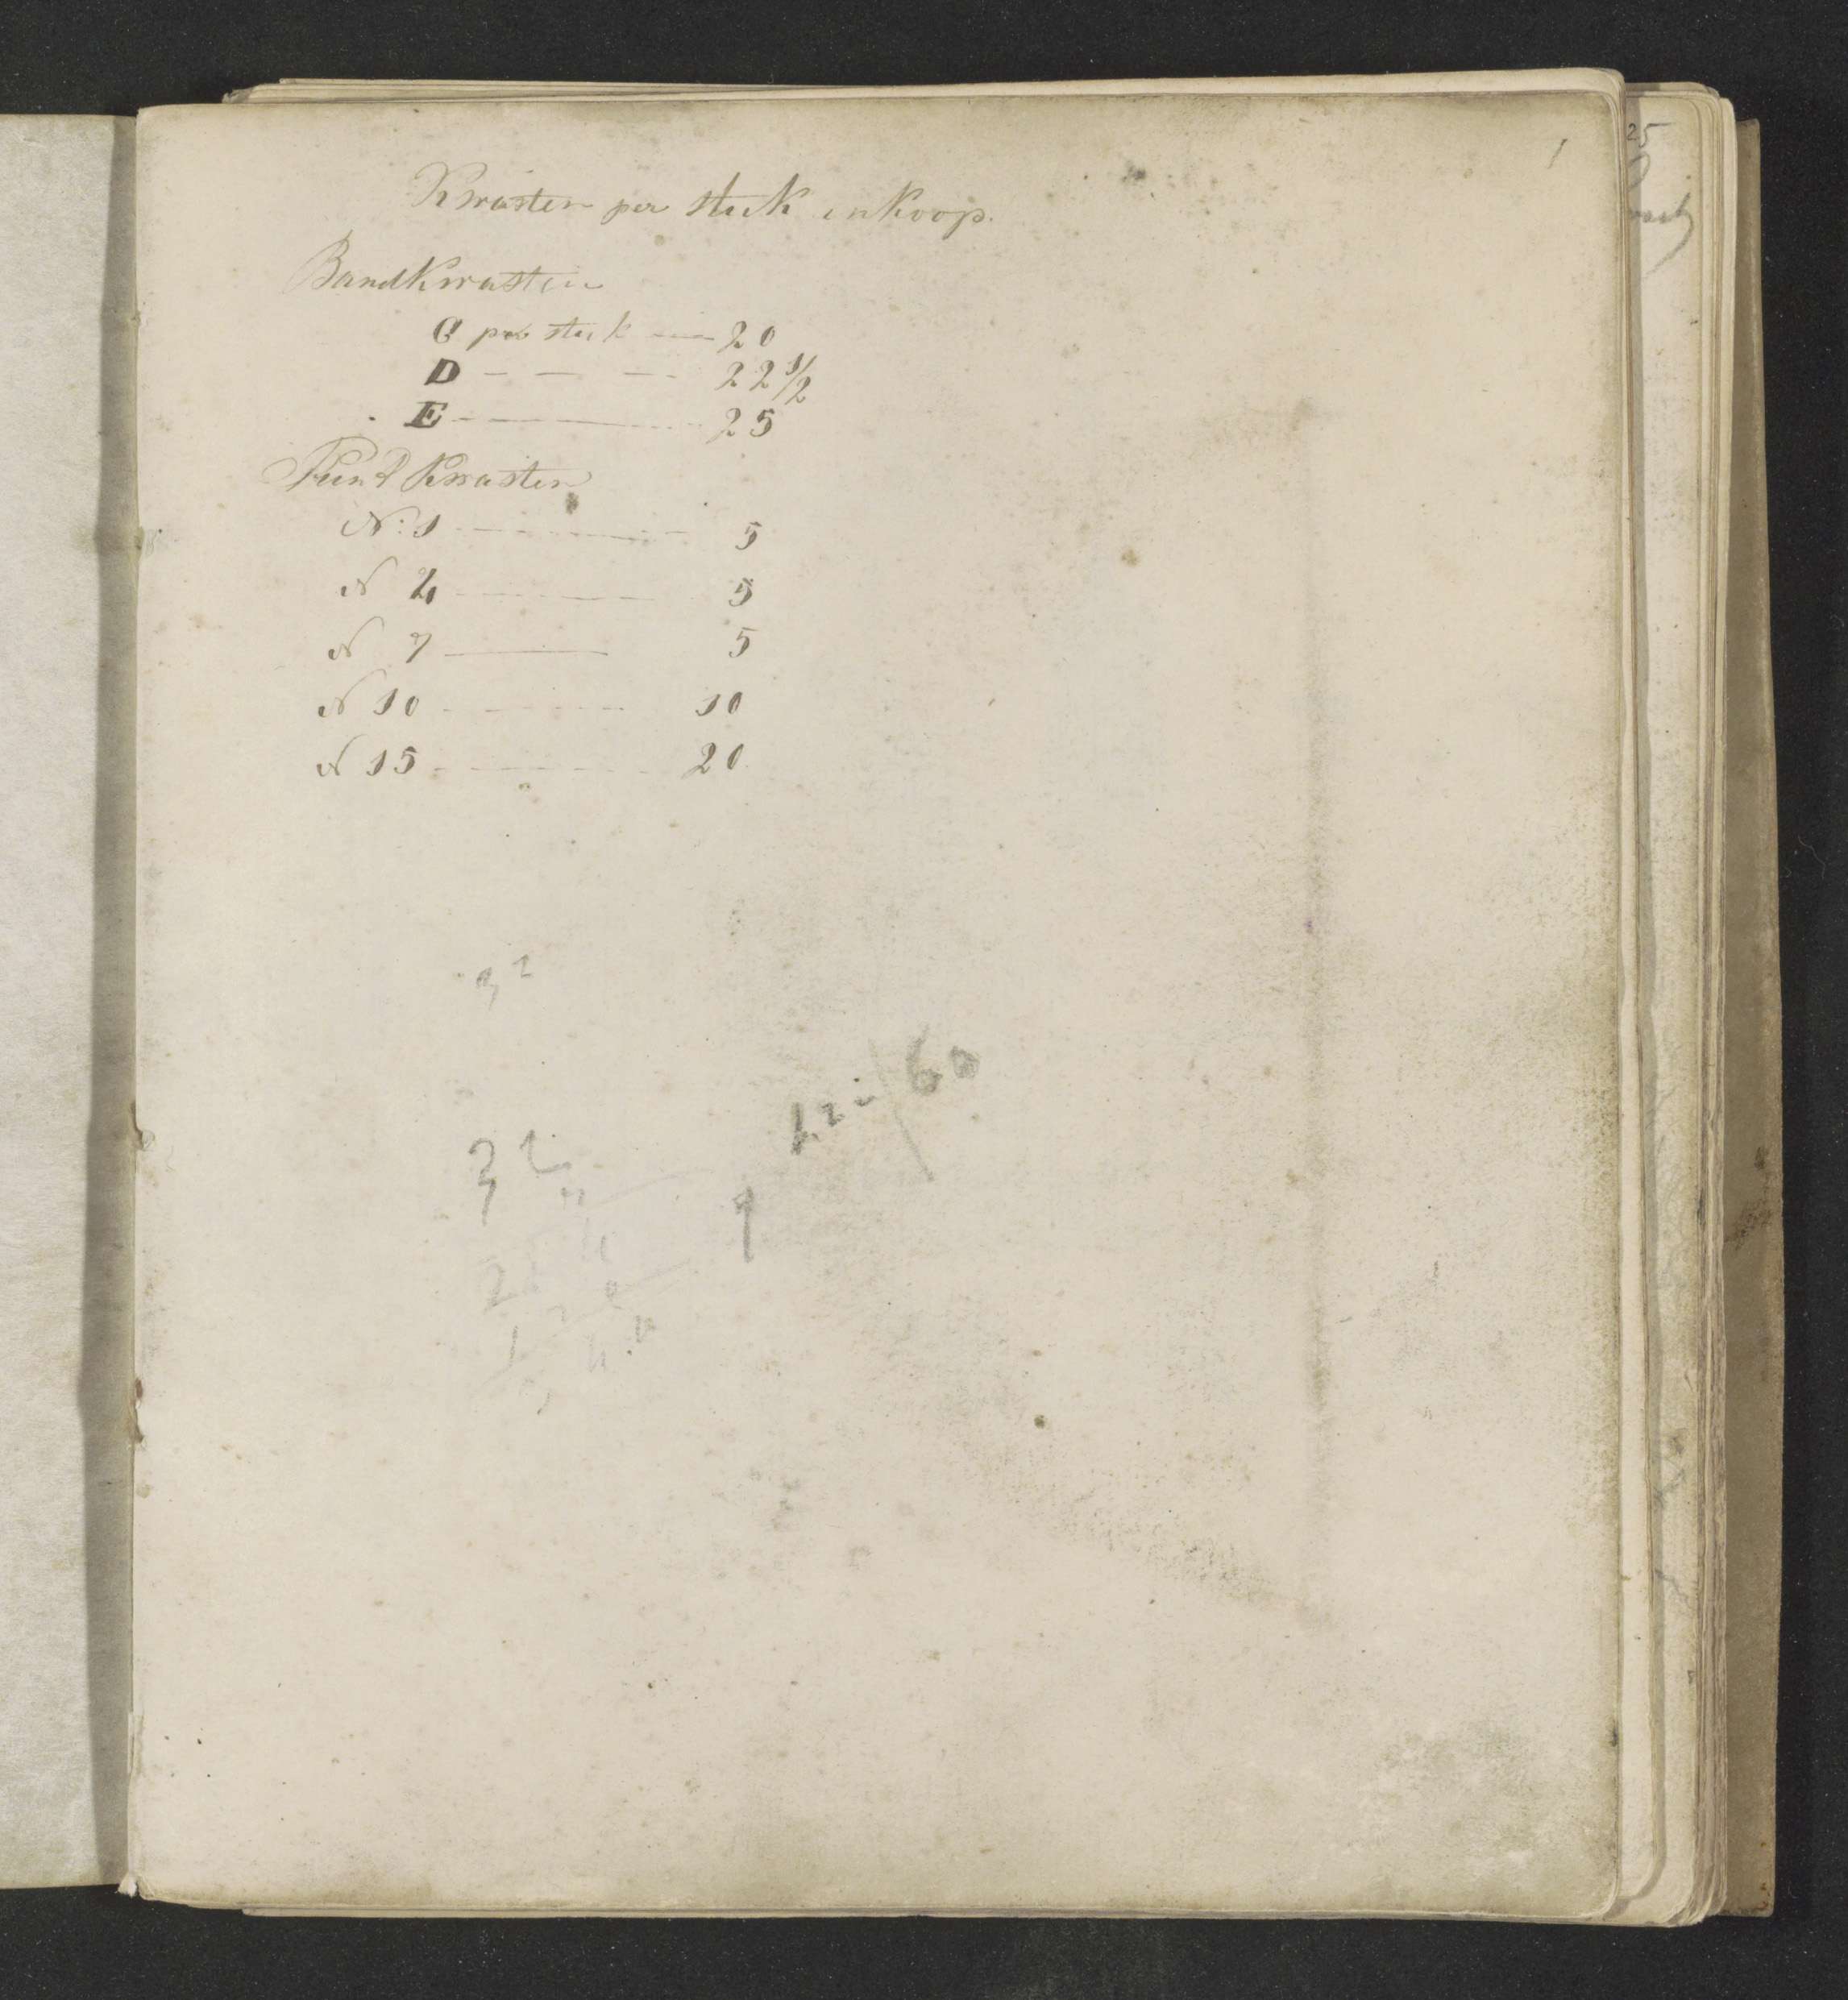 1
Kwasten per stuk inkoop.
Bandkwasten
C per stuk — 20
D - - - 22 1/2
E — 25
Punt kwasten
N: 1 — 5
N 4 — 5
N 7 — 5
N 10 - - - 10
N 15 - - - 20
32
60
32
1
25